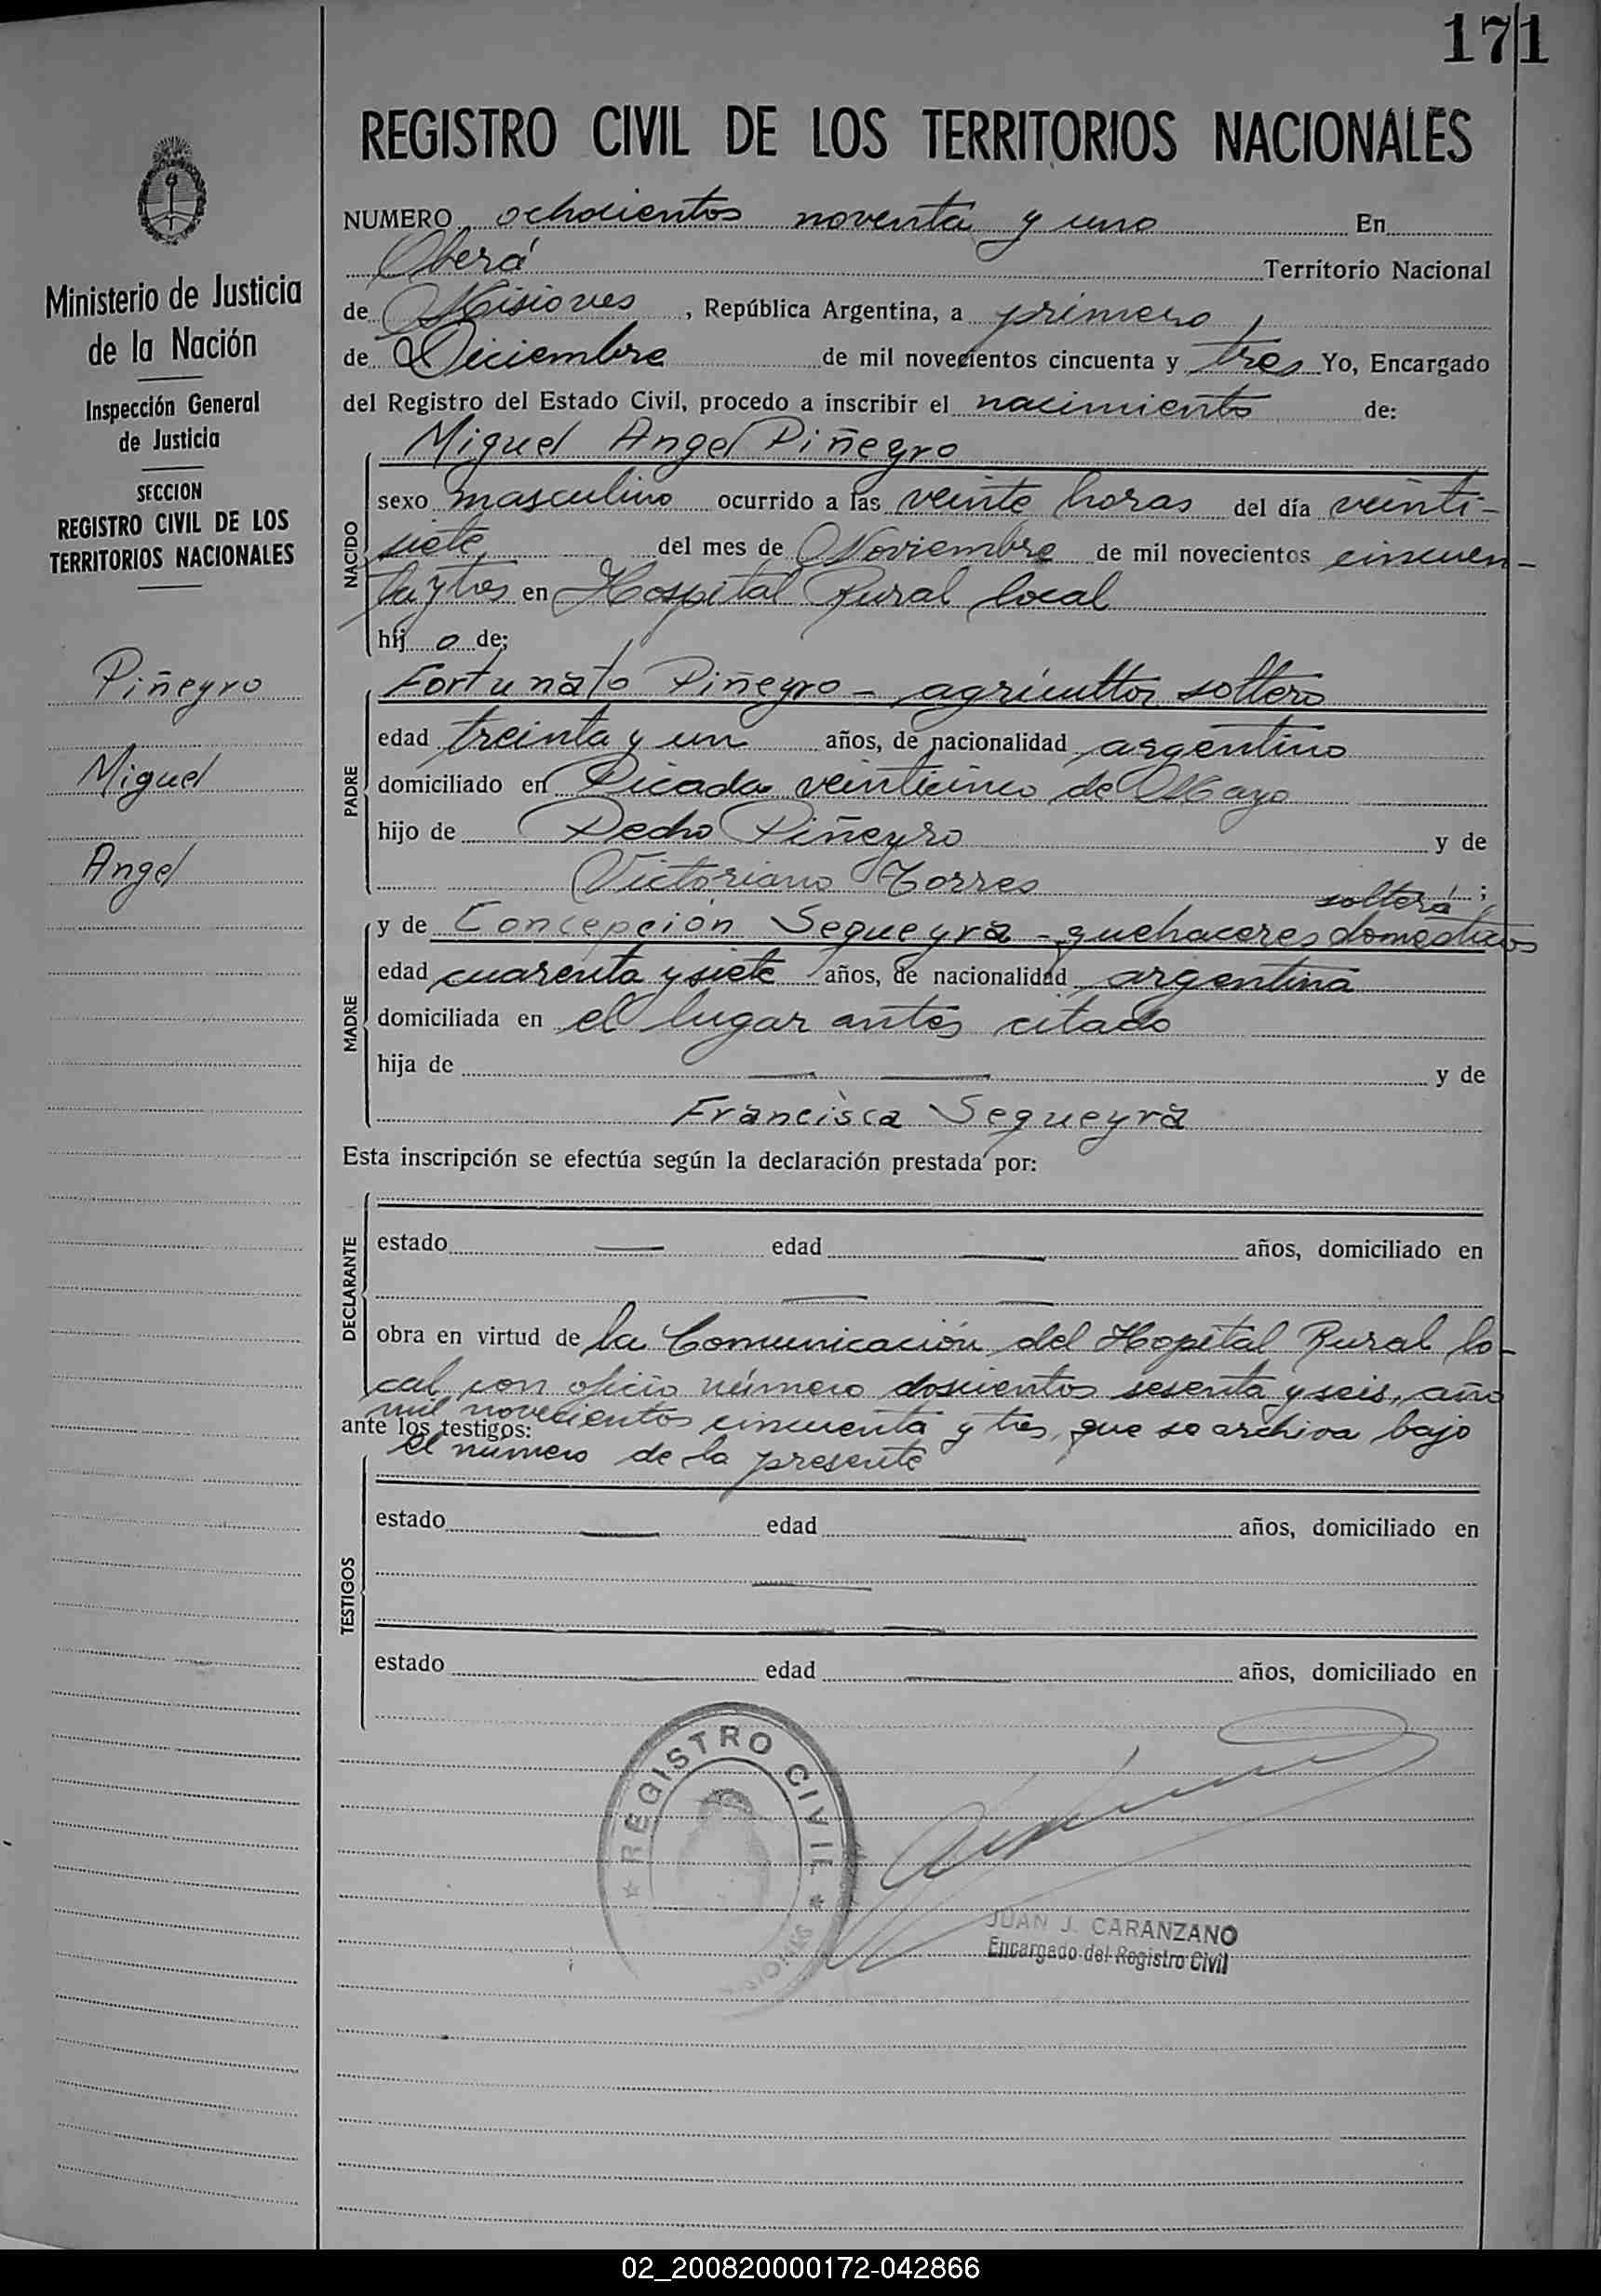 171
REGISTRO CIVIL DE LOS TERRITORIOS NACIONALES
Ministerio de Justicia
de la Nación
Inspección General
de Justicia
SECCION
REGISTRO CIVIL DE LOS
TERRITORIOS NACIONALES
Piñeyro
Miguel
Angel
NUMERO ochocientos noventa y uno En
Oberá Territorio Nacional
de Misiones, República Argentina, a primero
de Diciembre de mil novecientos cincuenta y tres Yo, Encargado
del Registro del Estado Civil, procedo a inscribir el nacimiento de:
Miguel Angel Piñegro
NACIDO
sexo masculino ocurrido a las veinte horas del día veinti-
siete, del mes de Noviembre de mil novecientos cincuen-
ta y tres en Hospital Rural local
hij o de:
Fortunato Piñegro - agricultor soltero
PADRE
edad treinta y un años, de nacionalidad argentino
domiciliado en Picada veinticinco de Mayo
hijo de Pedro Piñeyro y de
Victoriano Torres ;
soltera
y de Concepción Segueyra - quehaceres domesticos
MADRE
edad cuarenta y siete años, de nacionalidad argentina
domiciliada en el lugar antes citado
hija de — — y de
Francisca Segueyra
Esta inscripción se efectúa según la declaración prestada por:
DECLARANTE
estado — edad — años, domiciliado en
— —
obra en virtud de la Comunicación del Hopital Rural lo-
cal, con oficio número doscientos sesenta y seis, año
mil novecientos cincuenta y tres, que se archiva bajo
ante los testigos:
el número de la presente
TESTIGOS
estado — edad — años, domiciliado en
—
— —
estado — edad — años, domiciliado en
REGISTRO CIVIL
MISIONES
JUAN J. CARANZANO
Encargado del Registro Civil
02_200820000172-042866